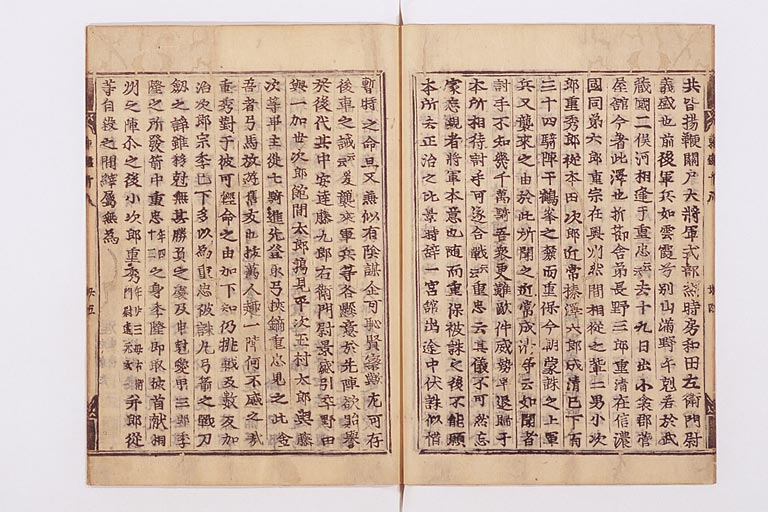 共皆揚鞭關戸大將軍式部丞時房和田左衛門尉
義盛也前後軍兵如雲霞兮列山滿野午剋各於武
藏國二俣河相逢于重忠重忠去十九日出小衾郡菅
屋舘今着此澤也折節舎弟長野三郎重清在信濃
國同弟六郎重宗在奥州然間相從之輩二男小次
郎重秀郎從本田次郎近常榛澤六郎成清已下百
三十四騎陣于鶴峯之麓而重保今朝蒙誅之上軍
兵又襲來之由於此所聞之近常成清等云如聞者
討手不知幾千萬騎吾衆更難敵件威勢早退歸于
本所相待討手可遂合戰云々重忠云其儀不可然忘
家忘親者將軍本意也随而重保被誅之後不能顧
本所去正治之比景時辞一宮舘出途中伏誅似惜
暫時之命且又兼似有陰謀企可恥賢察歟尤可存
後車之誡云々爰襲來軍兵等各懸意於先陣欲貽誉
於後代其中安達藤九郎右衛門尉景盛引卒野田
與一加世次郎飽間太郎鶴見平次玉村太郎與藤
次等主從七騎進先登取弓挟鏑重忠見之此金
吾者弓馬放遊舊友也抜萬人赴一陣何不感之哉
重秀對于彼可輕命之由加下知仍挑戰及数反加
治次郎宗季已下多以為重忠被誅凡弓箭之戰刀
劔之諍雖移剋無其勝負之處及申斜愛甲三郎季
隆之所發箭中重忠年四十二之身季隆即取彼首献相
州之陣尓之後小次郎重秀年廿三母右衛門尉遠元女并郎從
等自殺之間縡属無為